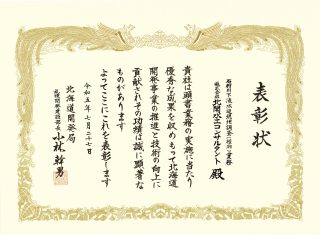 表彰状
石狩川下流水辺現地調査（植物）業務
株式会社北開水工コンサルタント 殿
貴社は頭書業務の実施に当たり
優秀な成果を収めもって北海道
開発事業の推進と技術の向上に
貢献されその功績は誠に顕著な
ものがあります
よってここにこれを表彰します
令和五年七月二十七日
北海道開発局
札幌開発建設部長 小林幹男